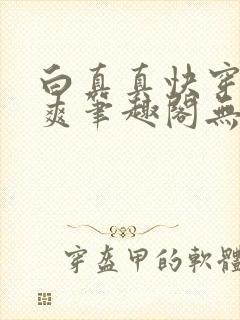 白真真快穿
爽筆趣閣無
穿盔甲的軟體